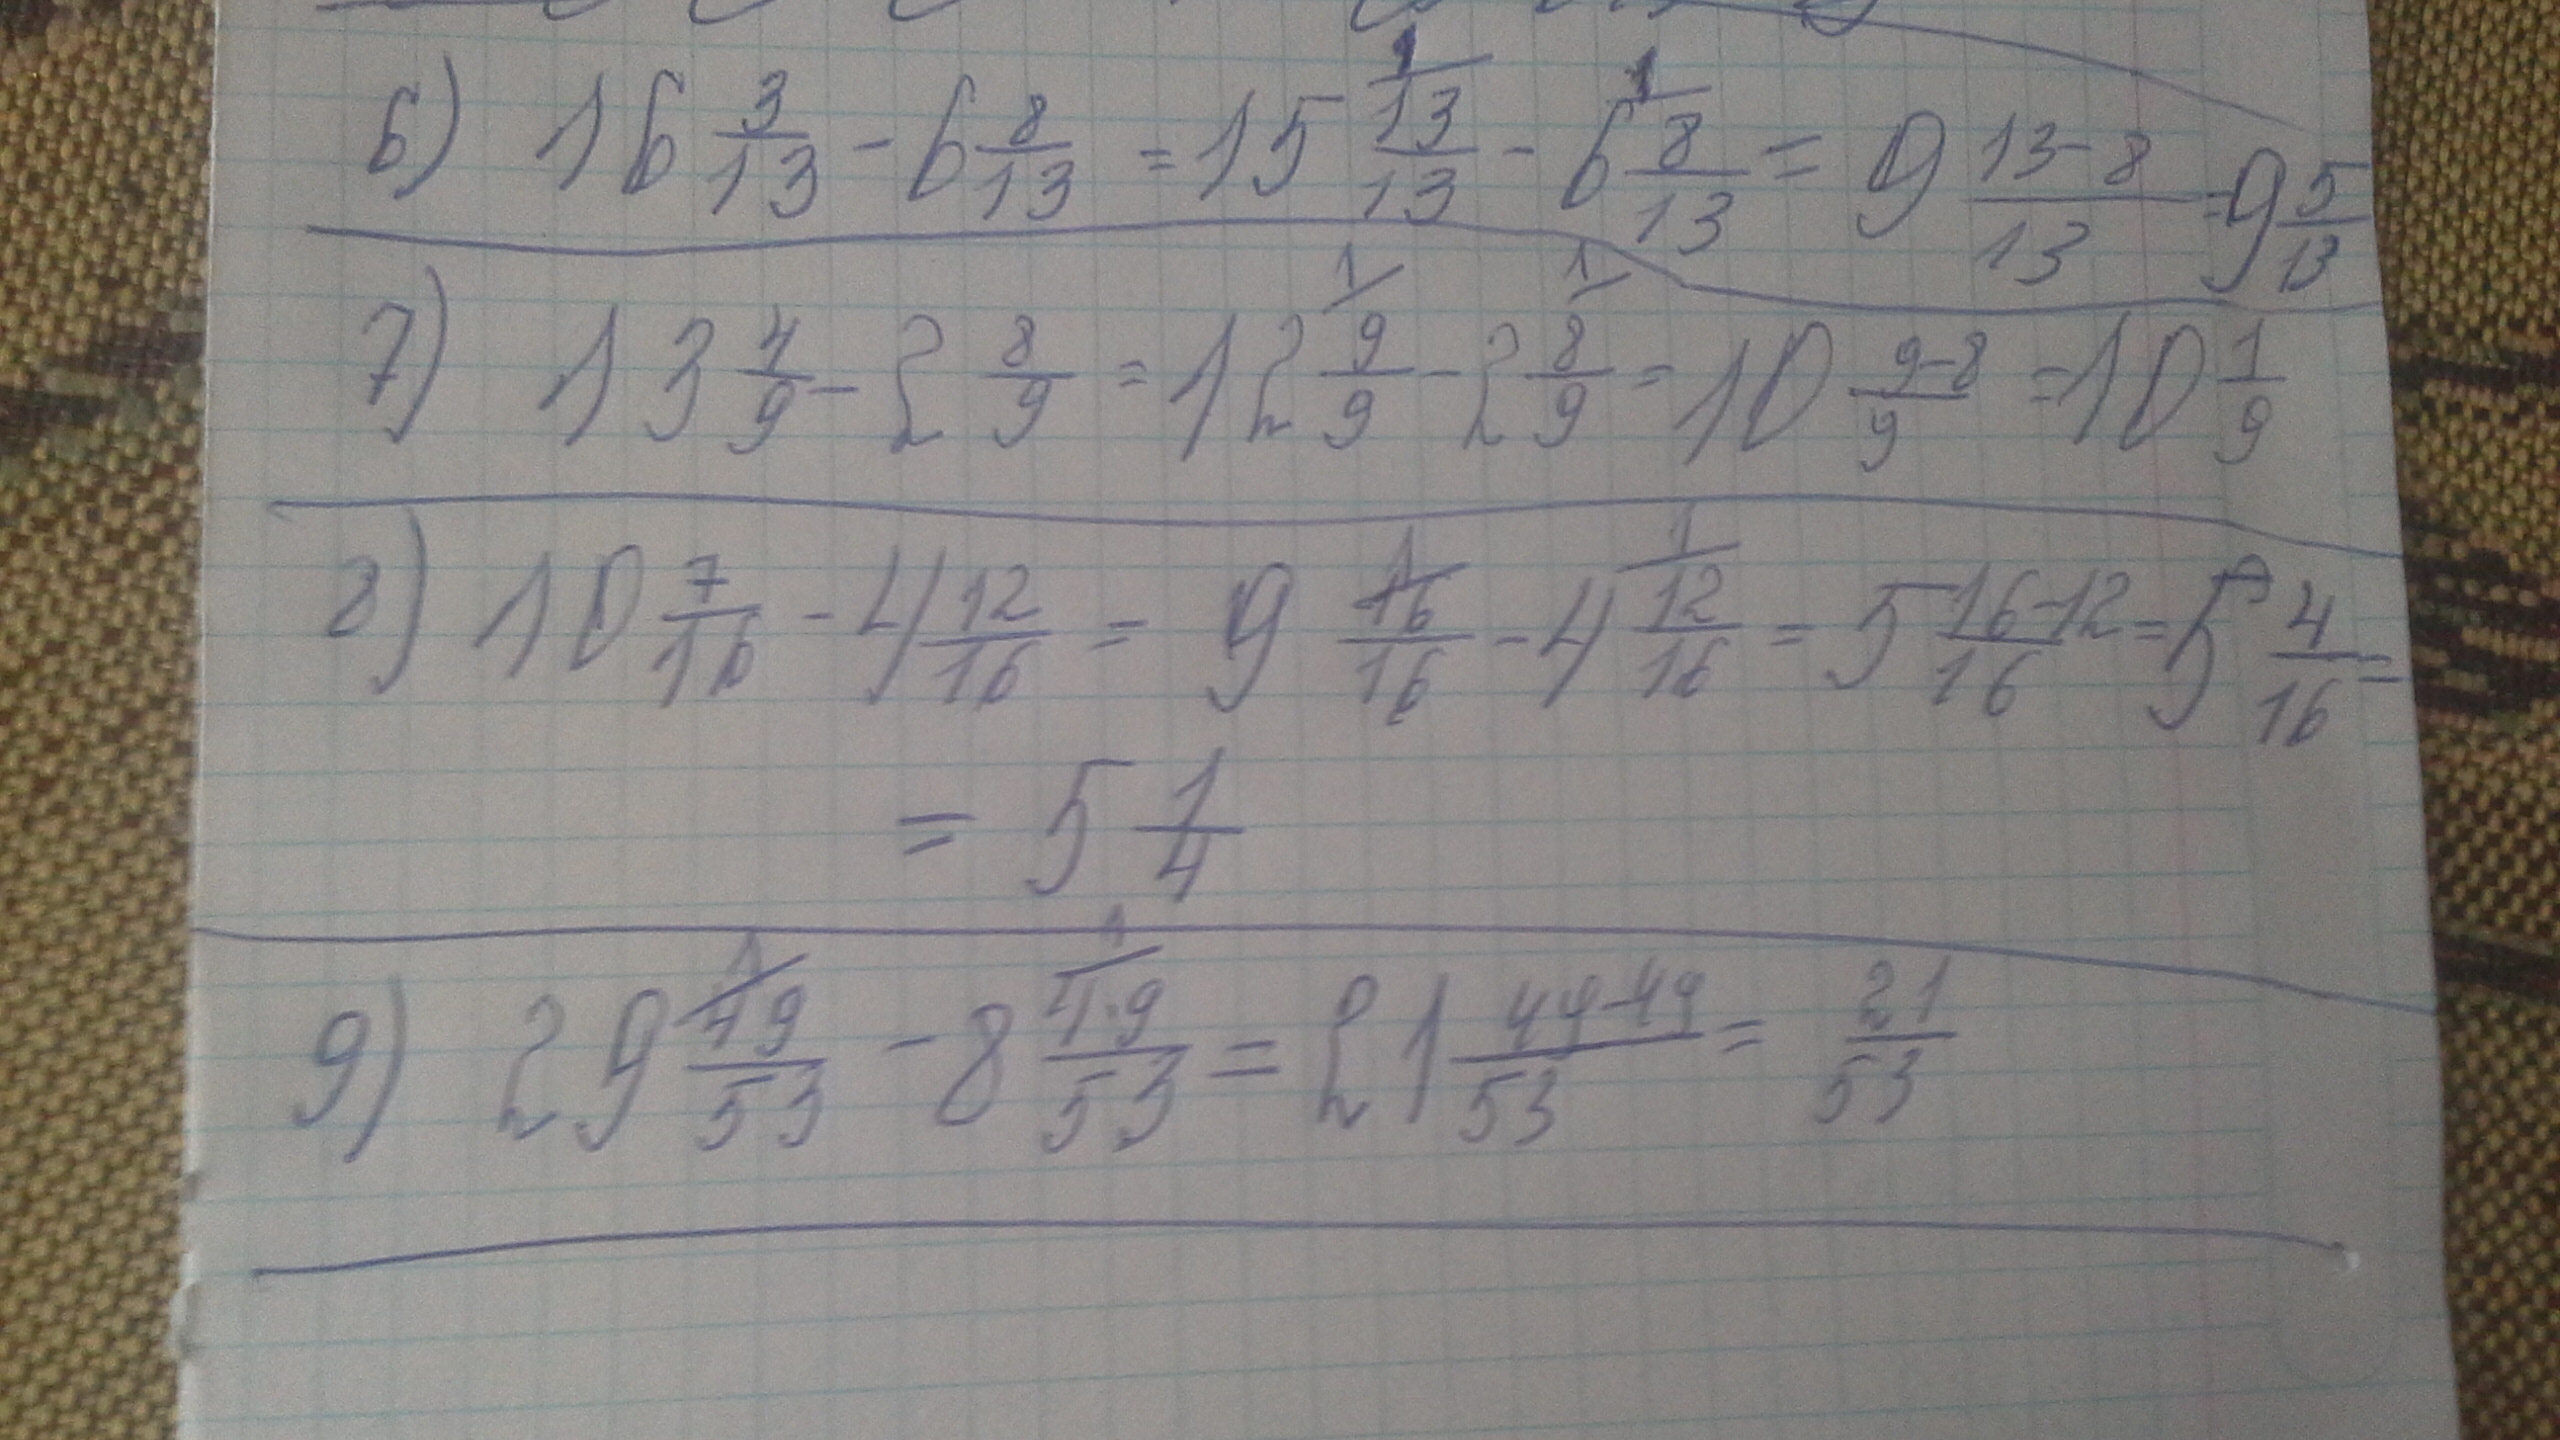 6) 16 3/13 - 6 8/13 = 15 13/13 1/ - 6 8/13 1/ = 9 13-8/13 = 9 5/13
7) 13 4/9 - 2 8/9 = 12 9/9 1/ - 2 8/9 1/ = 10 9-8/9 = 10 1/9
8) 10 7/16 - 4 12/16 = 9 16/16 1/ - 4 12/16 1/ = 5 16-12/16 = 5 4/16 =
= 5 1/4
9) 29 49/53 1/ - 8 4.9/53 1/ = 21 49-49/53 = 21/53